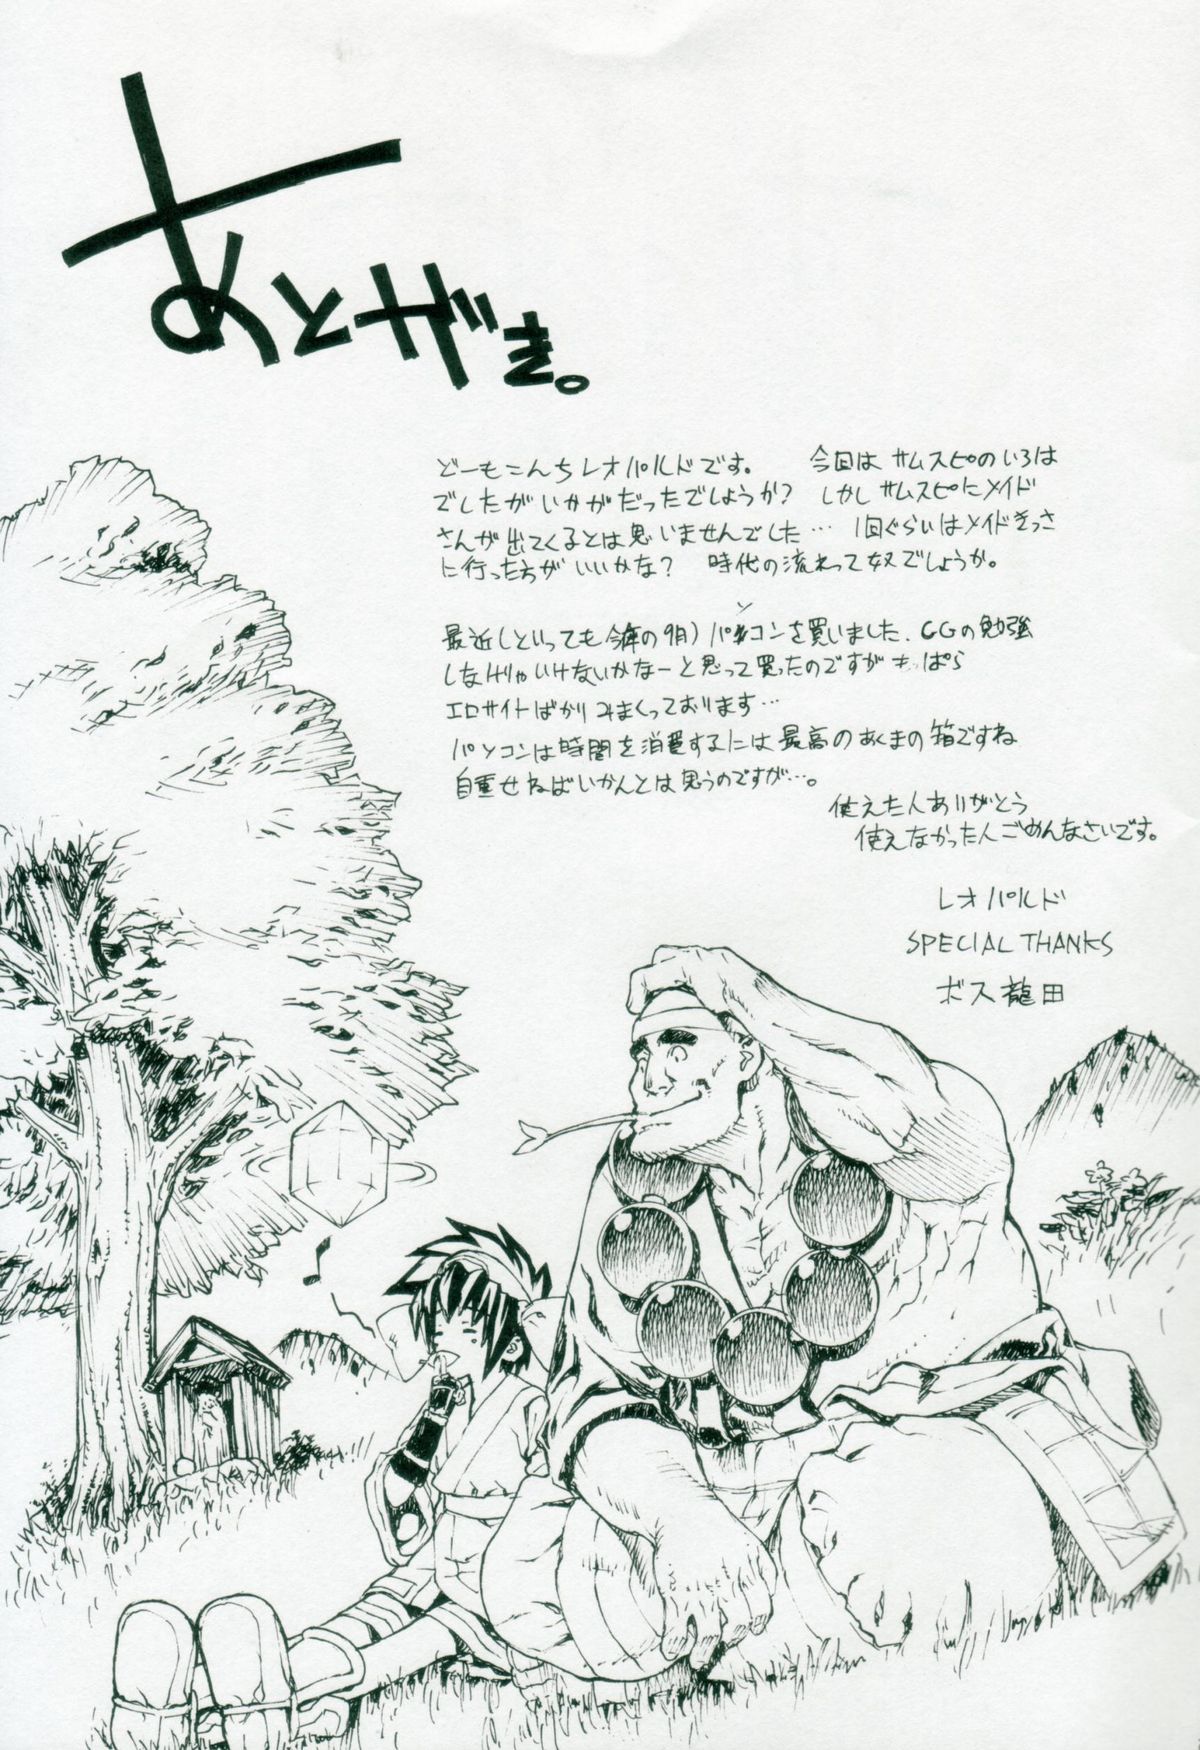 あとがき。
どーもこんちレオパルドです。 今回はサムスピのいろは
でしたがいかがだったでしょうか? しかしサムスピにメイド
さんが出てくるとは思いませんでした… 1回ぐらいはメイドきっさ
に行った方がいいかな? 時代の流れって奴でしょうか。
最近(といっても今年の9月)パソコンを買いました. CGの勉強
しなけりゃいけないかなーと思って買ったのですがもっぱら
エロサイトばかりみまくっております…
パソコンは時間を消費するには最高のあくまの箱ですね
自重せねばいかんとは思うのですが…。
使えた人ありがとう
使えなかった人ごめんなさいです。
レオパルド
SPECIAL THANKS
ボス龍田